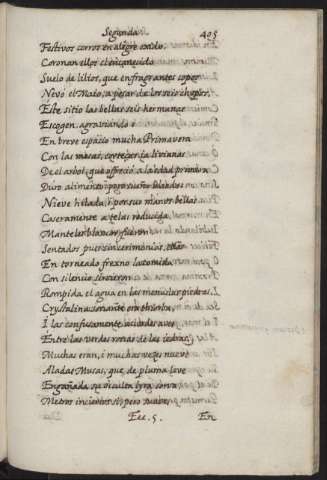 Segunda. 405
Festivos corros en alegre exido,
Coronan ellos el encanecido
Suelo de lilios, que en fragrantes copos
Nevò el Maio, a pesar de los seis chopos.
Este sitio las bellas seis hermanas
Escogen, agraviando
En breve espacio mucha Primavera
Con las mesas, cortezas ia livianas
De el arbol, que offreciò a la edad primera
Duro alimento, pero sueño blando.
Nieve hilada, i por sus manos bellas
Caseramente a telas reducida,
Manteles blancos fueron.
Sentados pues sin cerimonias, ellas
En torneado fraxno la comida
Con silencio sirvieron.
Rompida el agua en las menudas piedras,
Crystalina sonante era thiorba,
I las confusamente acordes aves
Entre las verdes roscas de las iedras,
Muchas eran, i muchas vezes nueve
Aladas Musas, que, de pluma leve
Engañada su occulta lyra corva
Metros inciertos sì, pero suaves,
Eee. 5. En